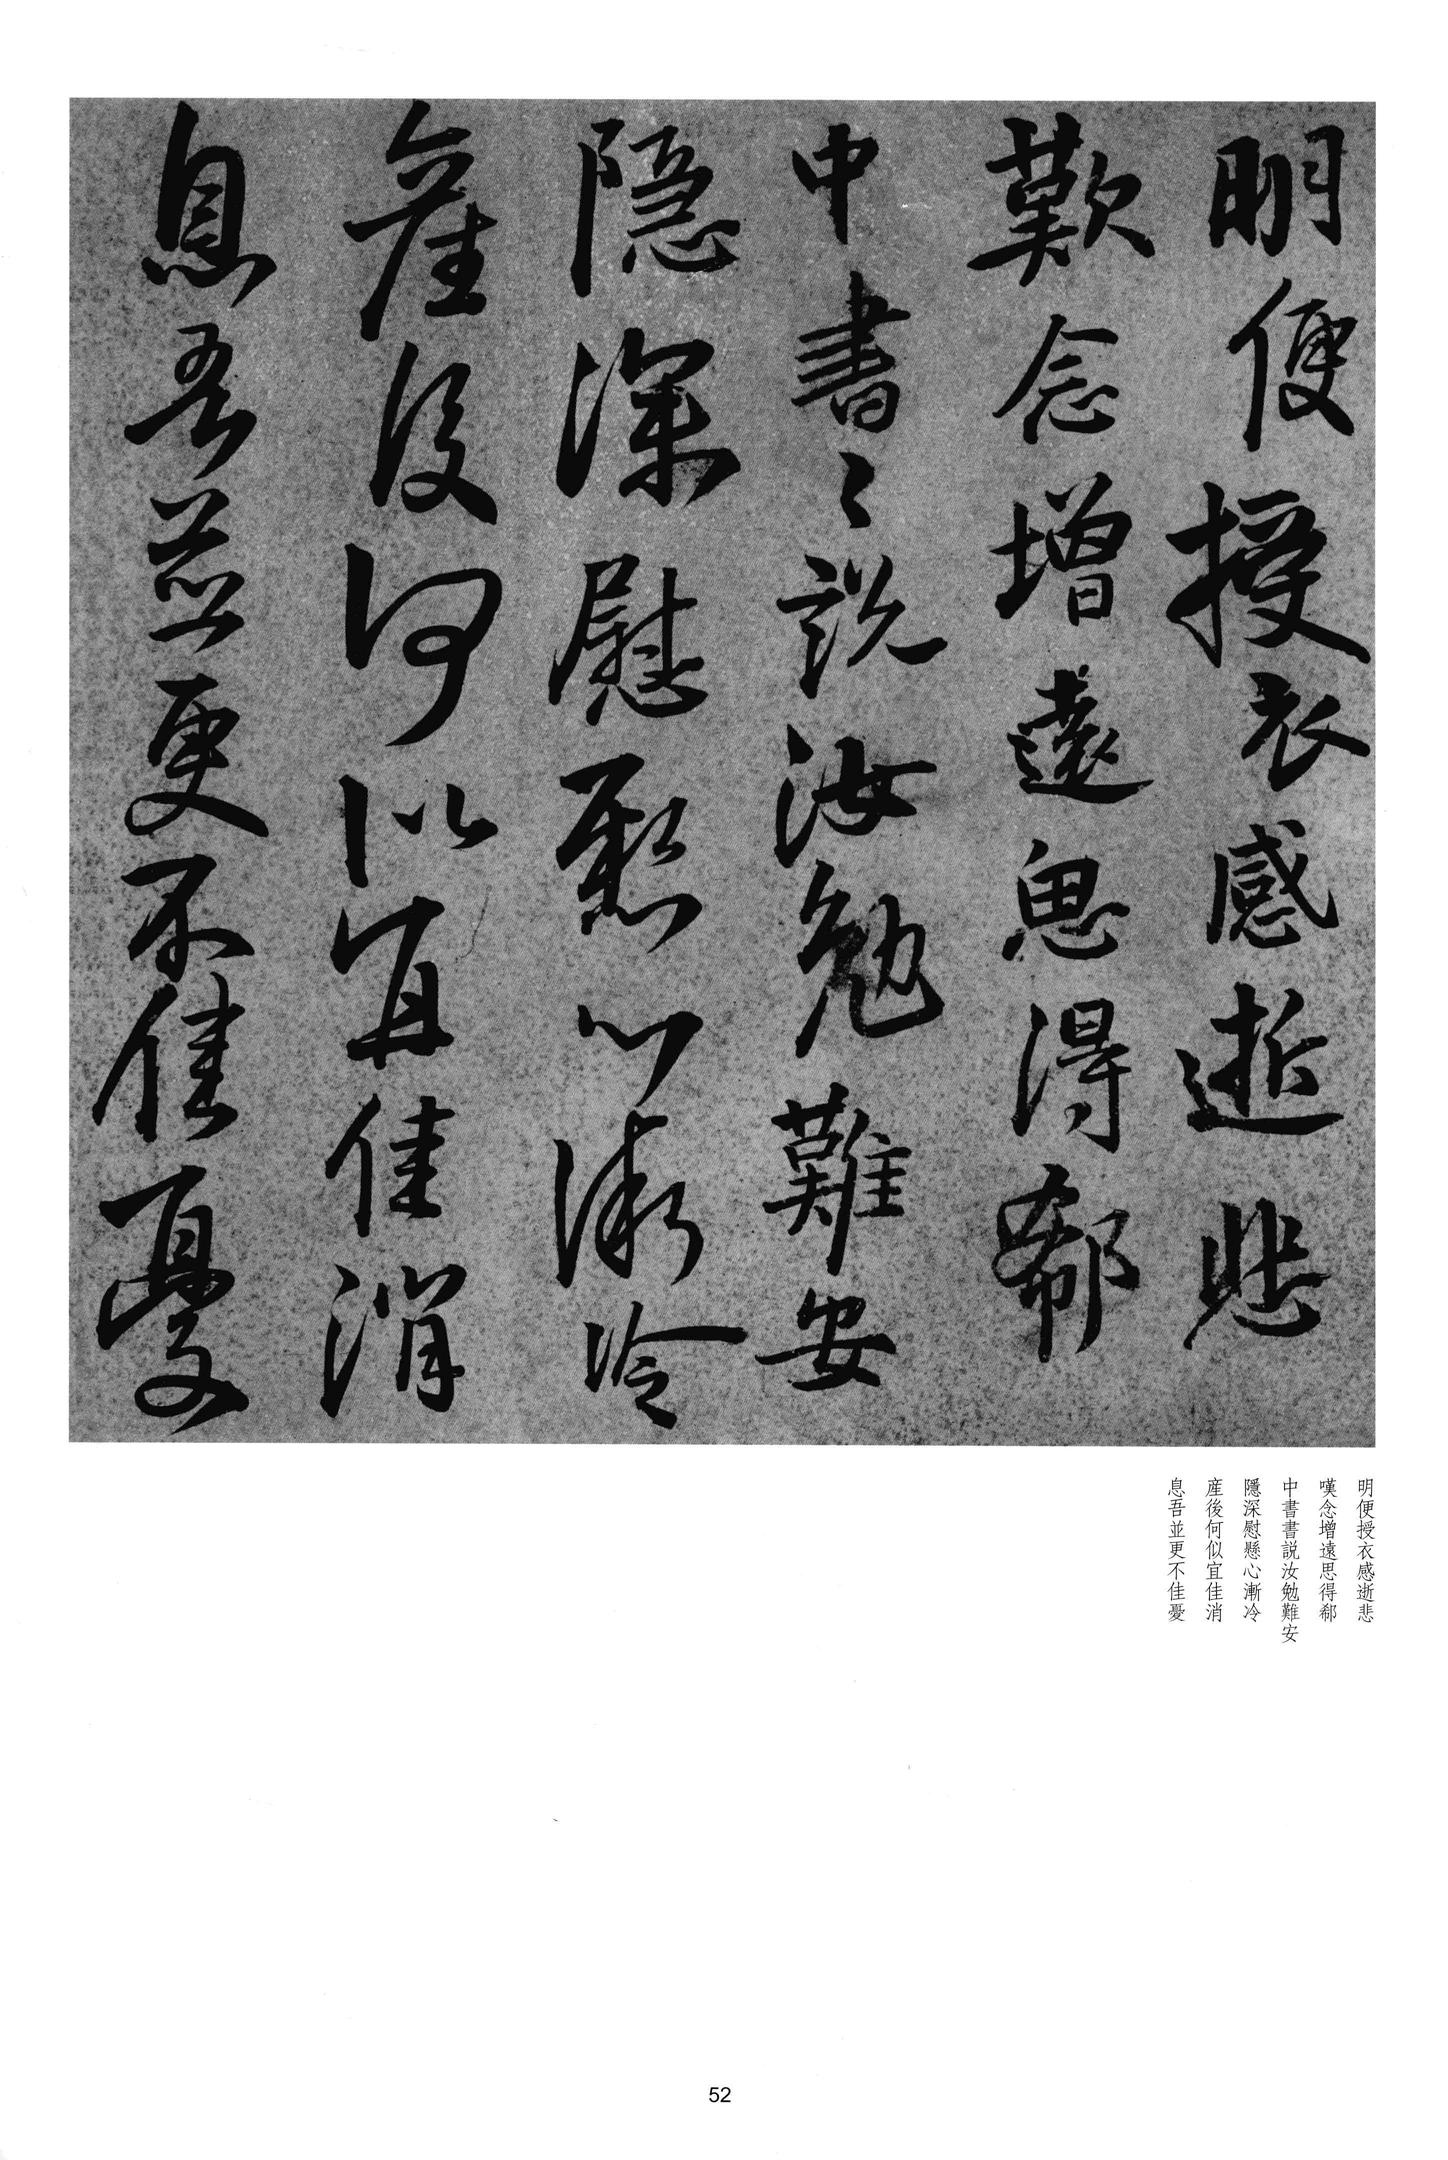 明便授衣感逝悲
歎念增遠思得郗
中書〻說汝勉難安
隱深慰懸心漸冷
產後何似宜佳消
息吾並更不佳憂
明便授衣感逝悲
嘆念增遠思得郗
中書書説汝勉難安
隱深慰懸心漸冷
産後何似宜佳消
息吾並更不佳憂
52